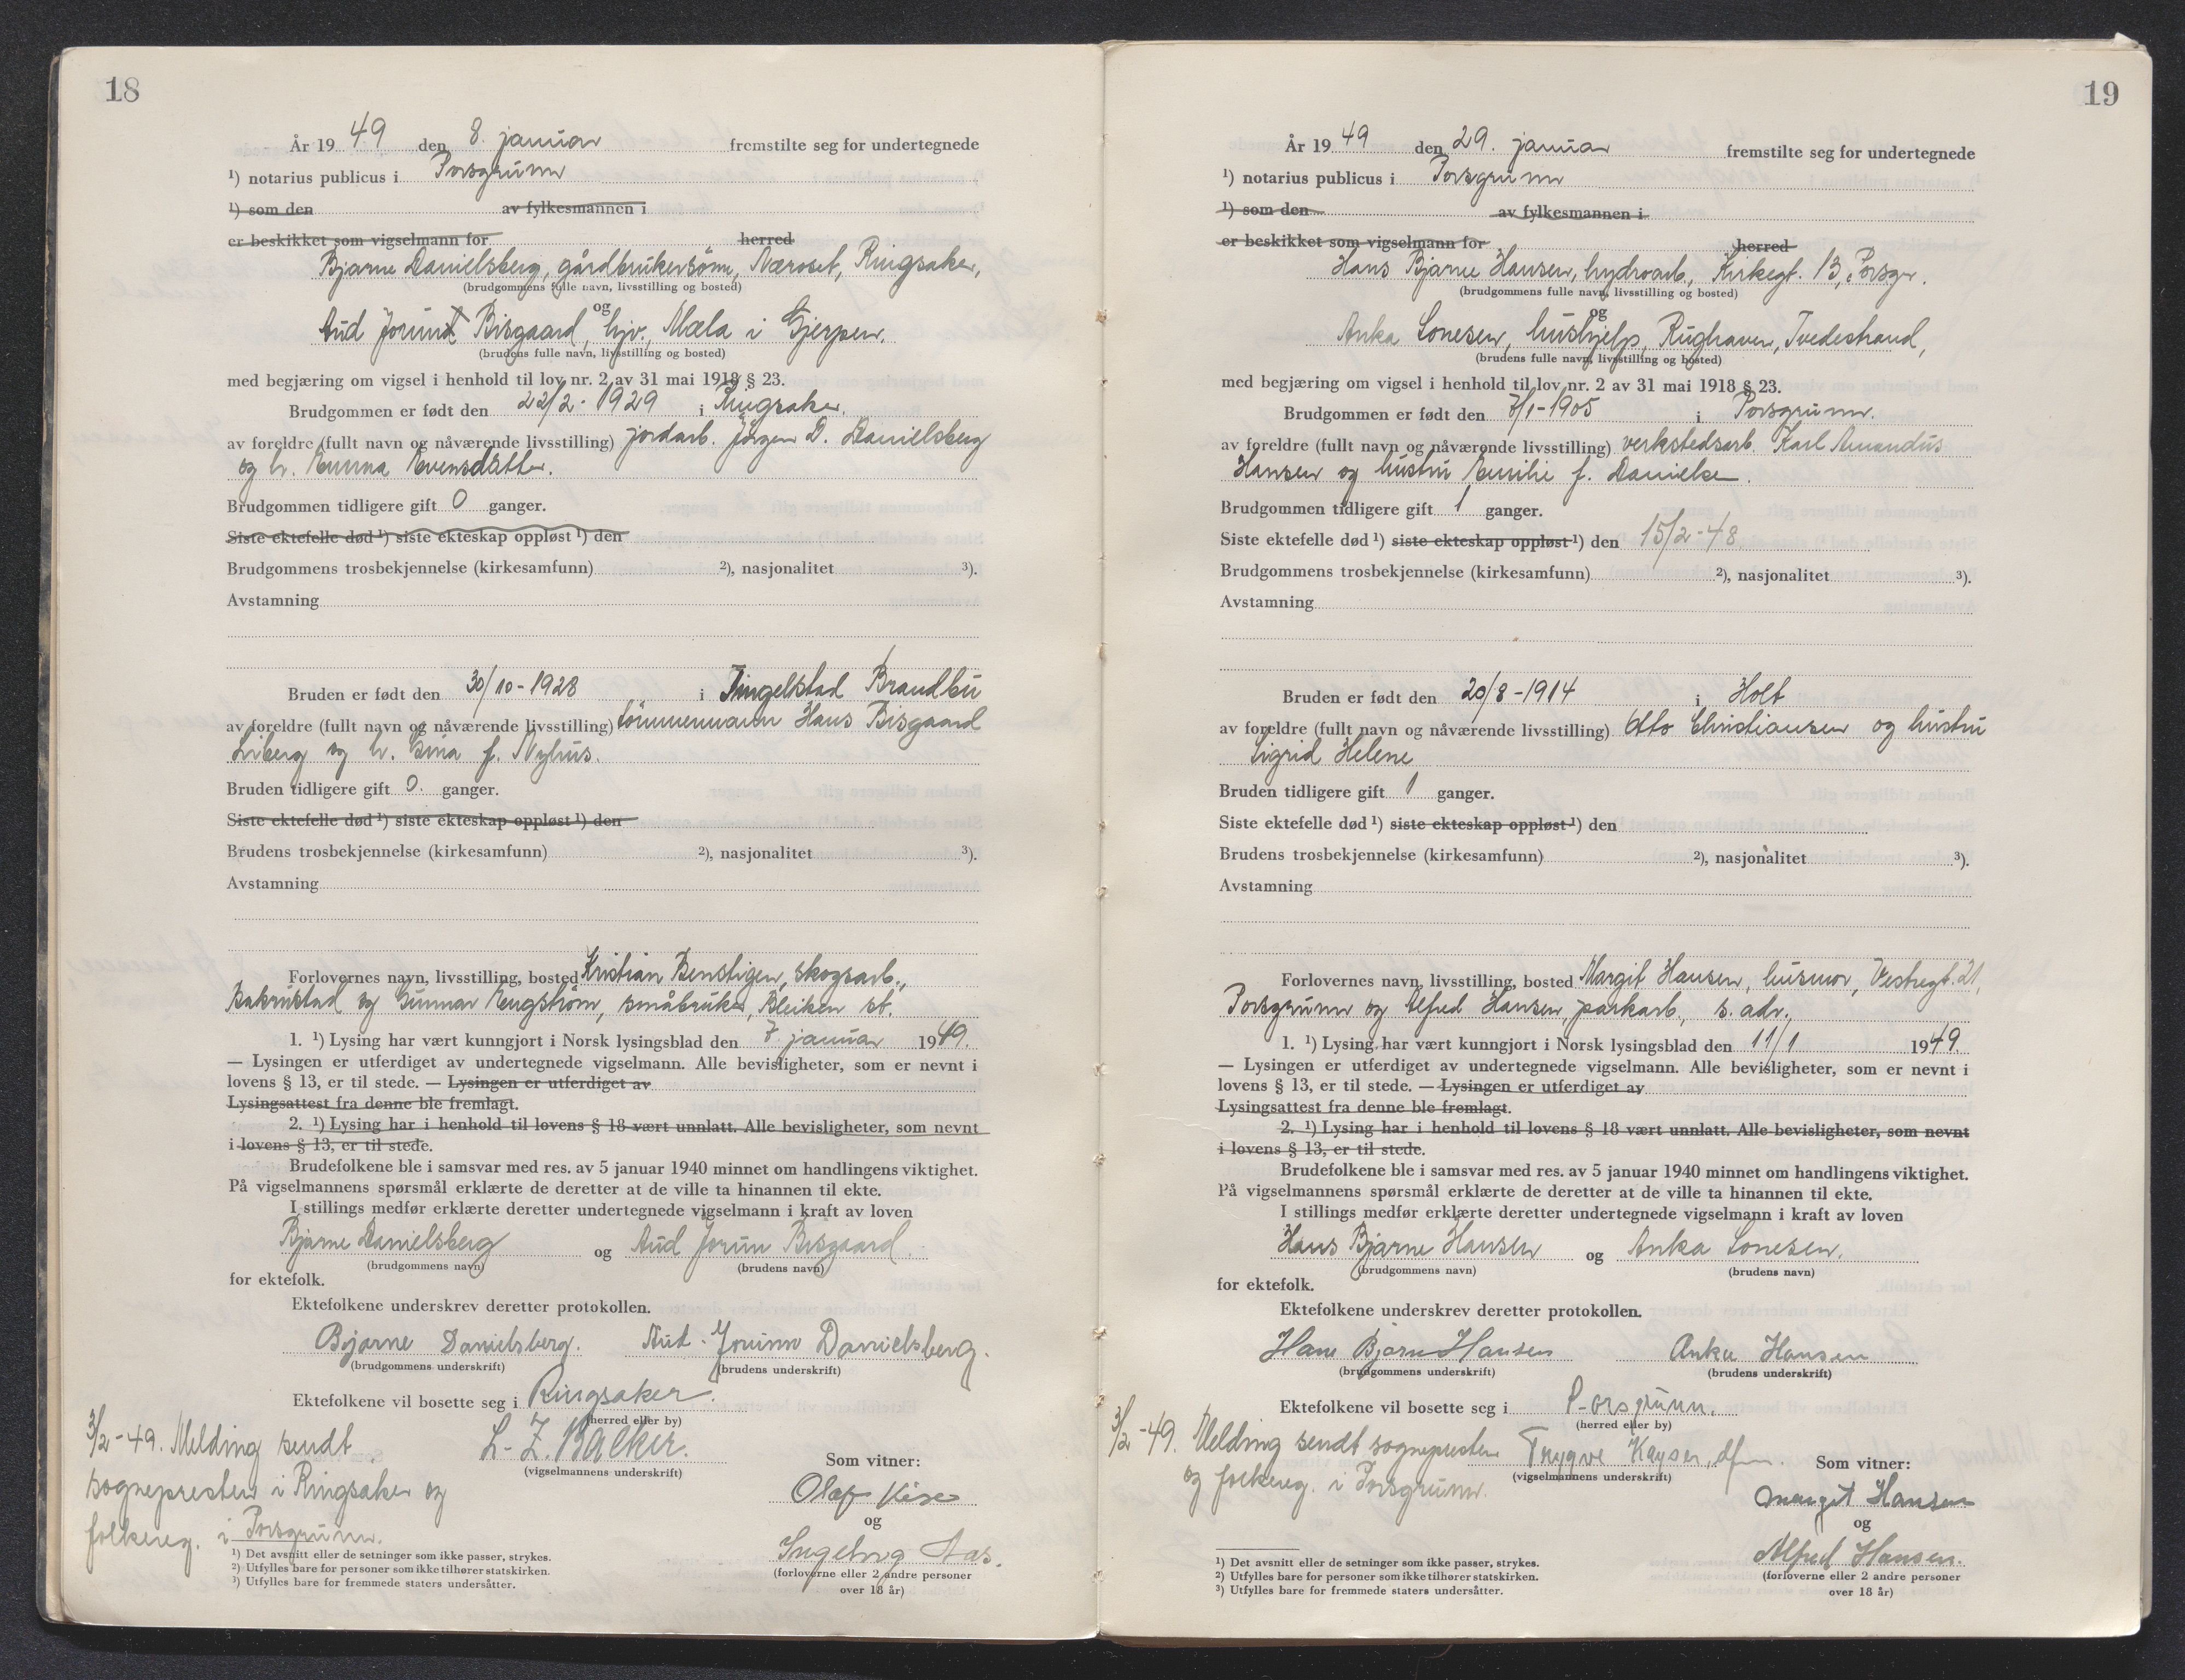 18
År 19 49 den 8. januar fremstilte seg for undertegnede
¹) notarius publicus i Porsgrunn
¹) som den av fylkesmannen i
er beskikket som vigselmann for herred
Bjarne Danielsberg, gårdbrukersönn, Næroset, Ringsaker,
(brudgommens fulle navn, livsstilling og bosted)
og
Aud Jorunn Bisgaard, hjv., Mæla i Gjerpen,
(brudens fulle navn, livsstilling og bosted)
med begjæring om vigsel i henhold til lov nr. 2 av 31 mai 1918 § 23.
Brudgommen er født den 22/2 - 1929 i Ringsaker.
av foreldre (fullt navn og nåværende livsstilling) jordarb. Jörgen D. Danielsberg
og h. Emma Evensdatter.
Brudgommen tidligere gift 0 ganger.
Siste ektefelle død ¹) siste ekteskap oppløst ¹) den
Brudgommens trosbekjennelse (kirkesamfunn) ²), nasjonalitet ³).
Avstamning
Bruden er født den 30/10 - 1928 i Tingelstad Brandbu
av foreldre (fullt navn og nåværende livsstilling) tömmermann Hans Bisgaard
Liberg og h. Gina f. Nyhus.
Bruden tidligere gift 0. ganger.
Siste ektefelle død ¹) siste ekteskap oppløst ¹) den
Brudens trosbekjennelse (kirkesamfunn) ²), nasjonalitet ³).
Avstamning
Forlovernes navn, livsstilling, bosted Kristian Benstigen, skogsarb.,
og Gunnar Engström, småbruker, Bleiken st.
1. ¹) Lysing har vært kunngjort i Norsk lysingsblad den 7. januar 1949.
— Lysingen er utferdiget av undertegnede vigselmann. Alle bevisligheter, som er nevnt i
lovens § 13, er til stede. — Lysingen er utferdiget av
Lysingsattest fra denne ble fremlagt.
2. ¹) Lysing har i henhold til lovens § 18 vært unnlatt. Alle bevisligheter, som nevnt
i lovens § 13, er til stede.
Brudefolkene ble i samsvar med res. av 5 januar 1940 minnet om handlingens viktighet.
På vigselmannens spørsmål erklærte de deretter at de ville ta hinannen til ekte.
I stillings medfør erklærte deretter undertegnede vigselmann i kraft av loven
Bjarne Danielsberg og Aud Jorun Bisgaard.
(brudgommens navn) (brudens navn)
for ektefolk.
Ektefolkene underskrev deretter protokollen.
Bjarne Danielsberg. Aud-Jorunn Danielsberg.
(brudgommens underskrift) (brudens underskrift)
Ektefolkene vil bosette seg i Ringsaker.
(herred eller by)
3/2 - 49. Melding sendt
sognepresten i Ringsaker og
folkereg. i Porsgrunn.
L. Z. Backer.
(vigselmannens underskrift)
Som vitner:
Olaf
og
Ingeborg Aas.
(forloverne eller 2 andre personer
over 18 år)
¹) Det avsnitt eller de setninger som ikke passer, strykes.
²) Utfylles bare for personer som ikke tilhører statskirken.
³) Utfylles bare for fremmede staters undersåtter.
19
År 19 49 den 29. januar fremstilte seg for undertegnede
¹) notarius publicus i Porsgrunn
¹) som den av fylkesmannen i
er beskikket som vigselmann for herred
Hans Bjarne Hansen, hydroarb., Kirkegt. 13, Porsgr.
(brudgommens fulle navn, livsstilling og bosted)
og
Anka Lonesen, hushjelp, Rughaven, Tvedestrand,
(brudens fulle navn, livsstilling og bosted)
med begjæring om vigsel i henhold til lov nr. 2 av 31 mai 1918 § 23.
Brudgommen er født den 7/1 - 1905 i Porsgrunn.
av foreldre (fullt navn og nåværende livsstilling) verkstedsarb. Karl Amandus
Hansen og hustru Emilie f. Danielsen.
Brudgommen tidligere gift 1 ganger.
Siste ektefelle død ¹) siste ekteskap oppløst ¹) den 15/2 - 48.
Brudgommens trosbekjennelse (kirkesamfunn) ²), nasjonalitet ³).
Avstamning
Bruden er født den 20/8 - 1914 i Holt
av foreldre (fullt navn og nåværende livsstilling) Otto Christiansen og hustru
Sigrid Helene
Bruden tidligere gift 1 ganger.
Siste ektefelle død ¹) siste ekteskap oppløst ¹) den
Brudens trosbekjennelse (kirkesamfunn) ²), nasjonalitet ³).
Avstamning
Forlovernes navn, livsstilling, bosted Margit Hansen, husmor, Vestregt. 21,
Porsgrunn og Alfred Hansen, parkarb., s. adr.,
1. ¹) Lysing har vært kunngjort i Norsk lysingsblad den 11/1 1949.
— Lysingen er utferdiget av undertegnede vigselmann. Alle bevisligheter, som er nevnt i
lovens § 13, er til stede. — Lysingen er utferdiget av
Lysingsattest fra denne ble fremlagt.
2. ¹) Lysing har i henhold til lovens § 18 vært unnlatt. Alle bevisligheter, som nevnt
i lovens § 13, er til stede.
Brudefolkene ble i samsvar med res. av 5 januar 1940 minnet om handlingens viktighet.
På vigselmannens spørsmål erklærte de deretter at de ville ta hinannen til ekte.
I stillings medfør erklærte deretter undertegnede vigselmann i kraft av loven
Hans Bjarne Hansen og Anka Lonesen.
(brudgommens navn) (brudens navn)
for ektefolk.
Ektefolkene underskrev deretter protokollen.
Hans Bjarne Hansen Anka Hansen
(brudgommens underskrift) (brudens underskrift)
Ektefolkene vil bosette seg i Porsgrunn.
(herred eller by)
3/2 - 49. Melding sendt sognepresten
og folkereg. i Porsgrunn.
Trygve Kayser, dfm.
(vigselmannens underskrift)
Som vitner:
Margit Hansen
og
Alfred Hansen.
(forloverne eller 2 andre personer
over 18 år)
¹) Det avsnitt eller de setninger som ikke passer, strykes.
²) Utfylles bare for personer som ikke tilhører statskirken.
³) Utfylles bare for fremmede staters undersåtter.